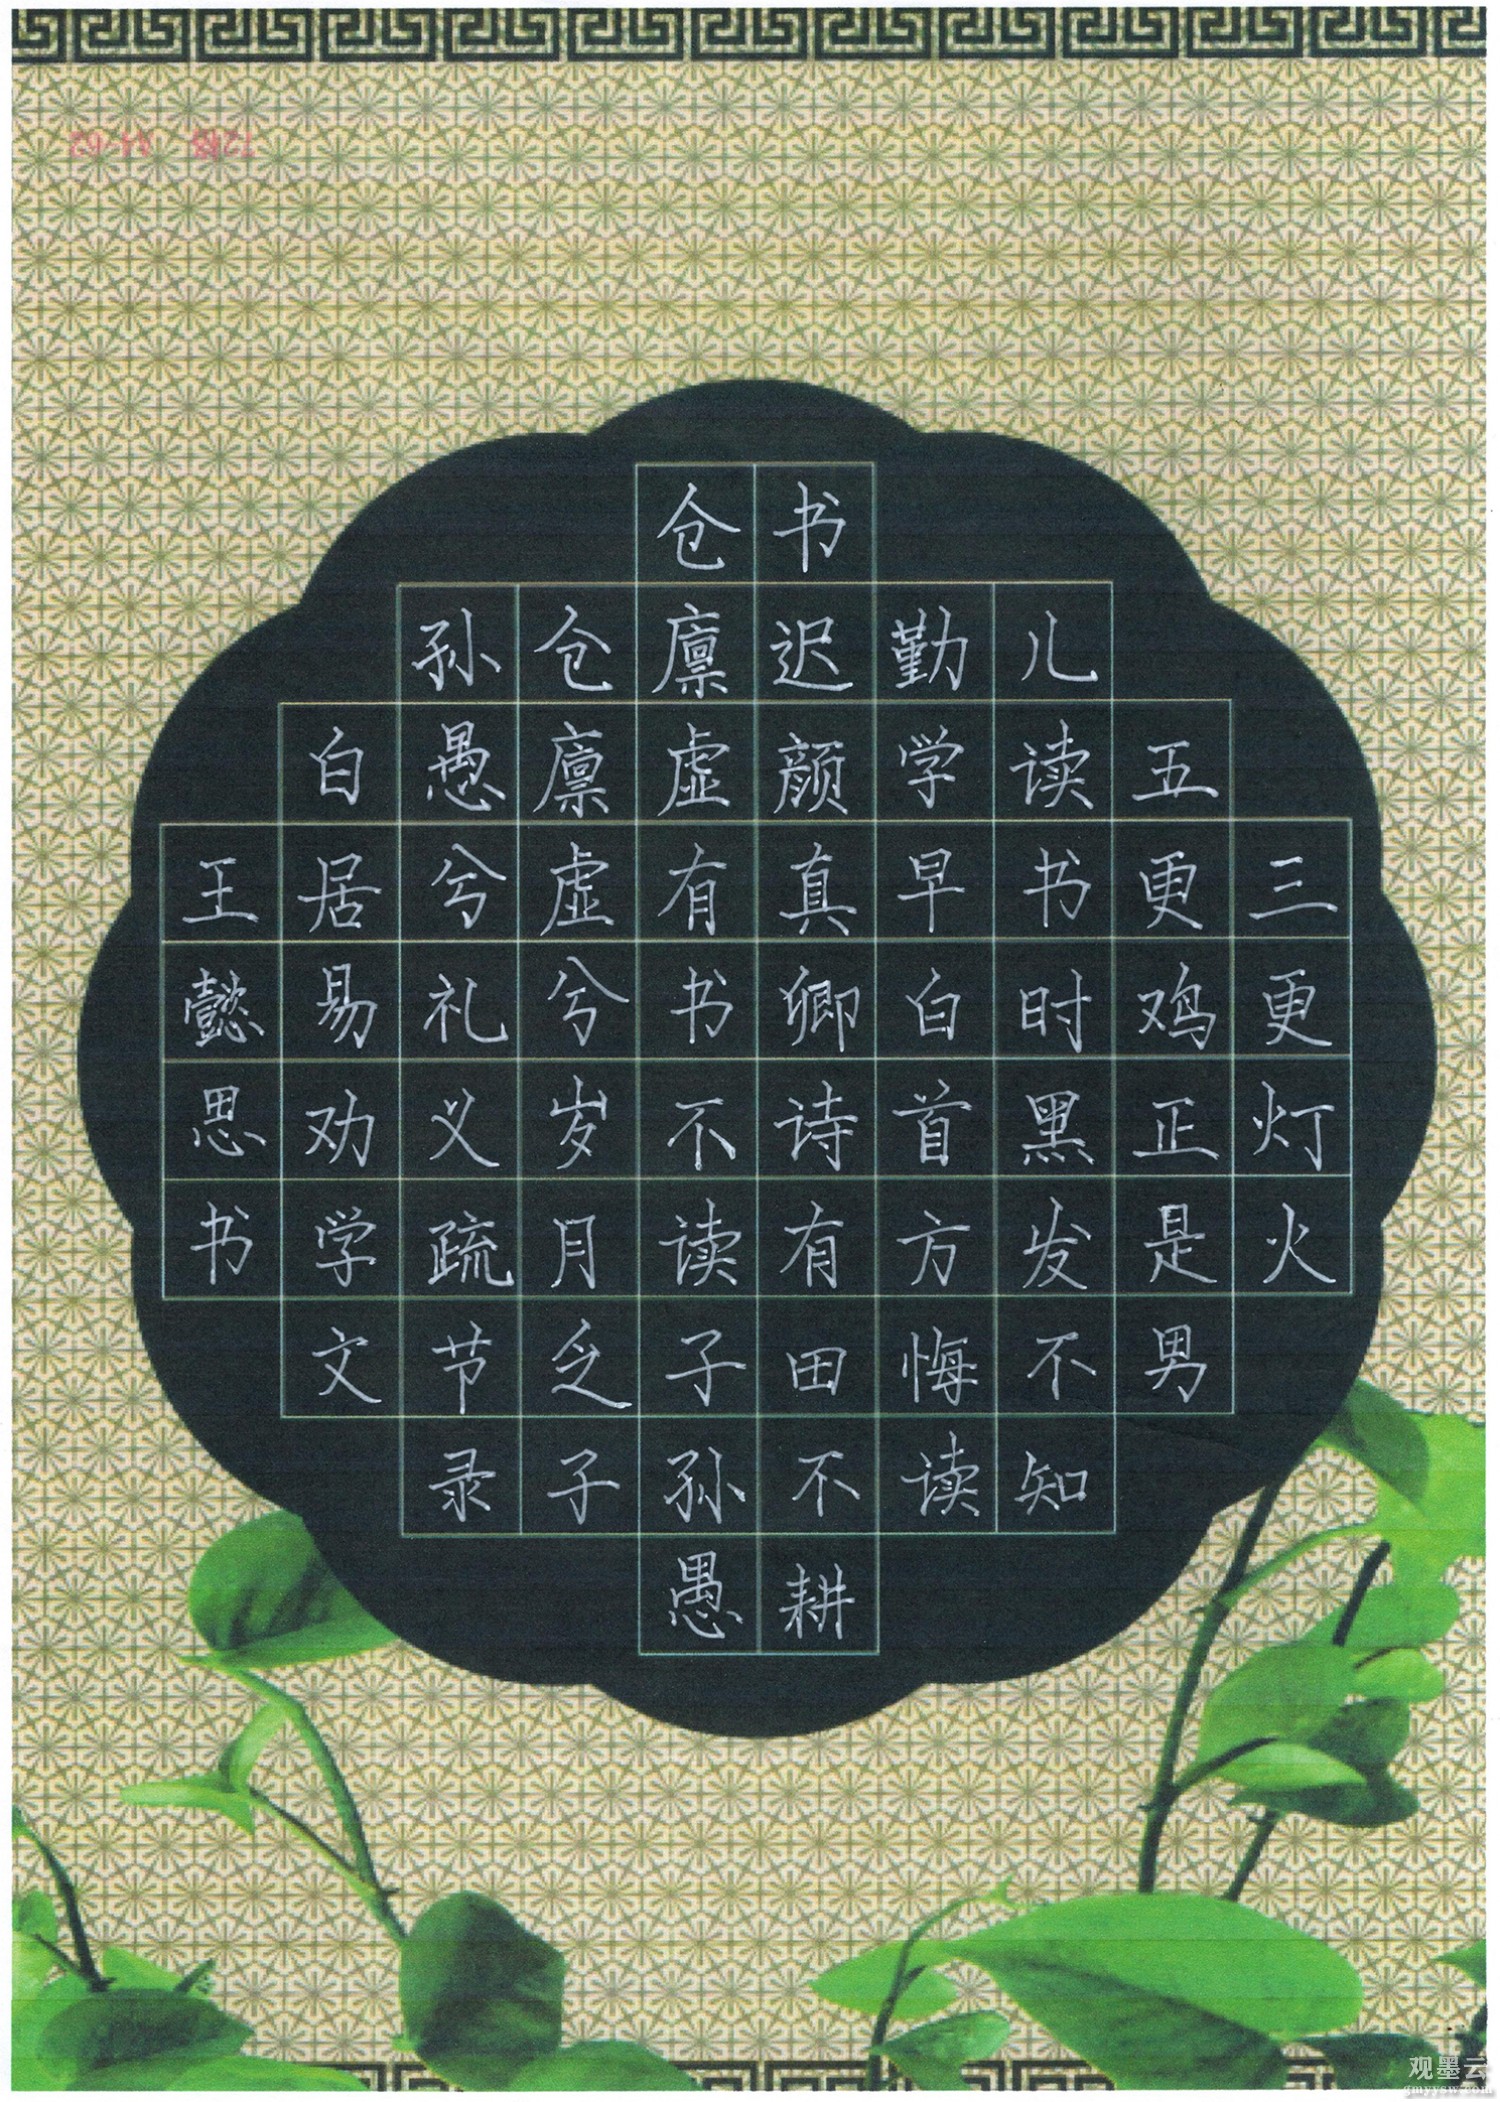 三更灯火
五更鸡正是男
儿读书时黑发不知
勤学早白首方悔读
书迟颜真卿诗有田不耕
仓廪虚有书不读子孙愚
仓廪虚兮岁月乏子
孙愚兮礼义疏节录
白居易劝学文
王懿思书
72格 A4-62
观墨云
gmyysw.com